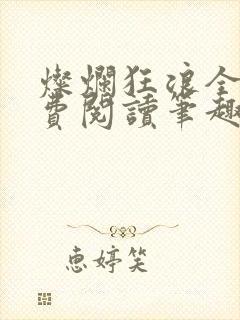 燦爛狂浪全
費閱讀筆趣
惠婷笑